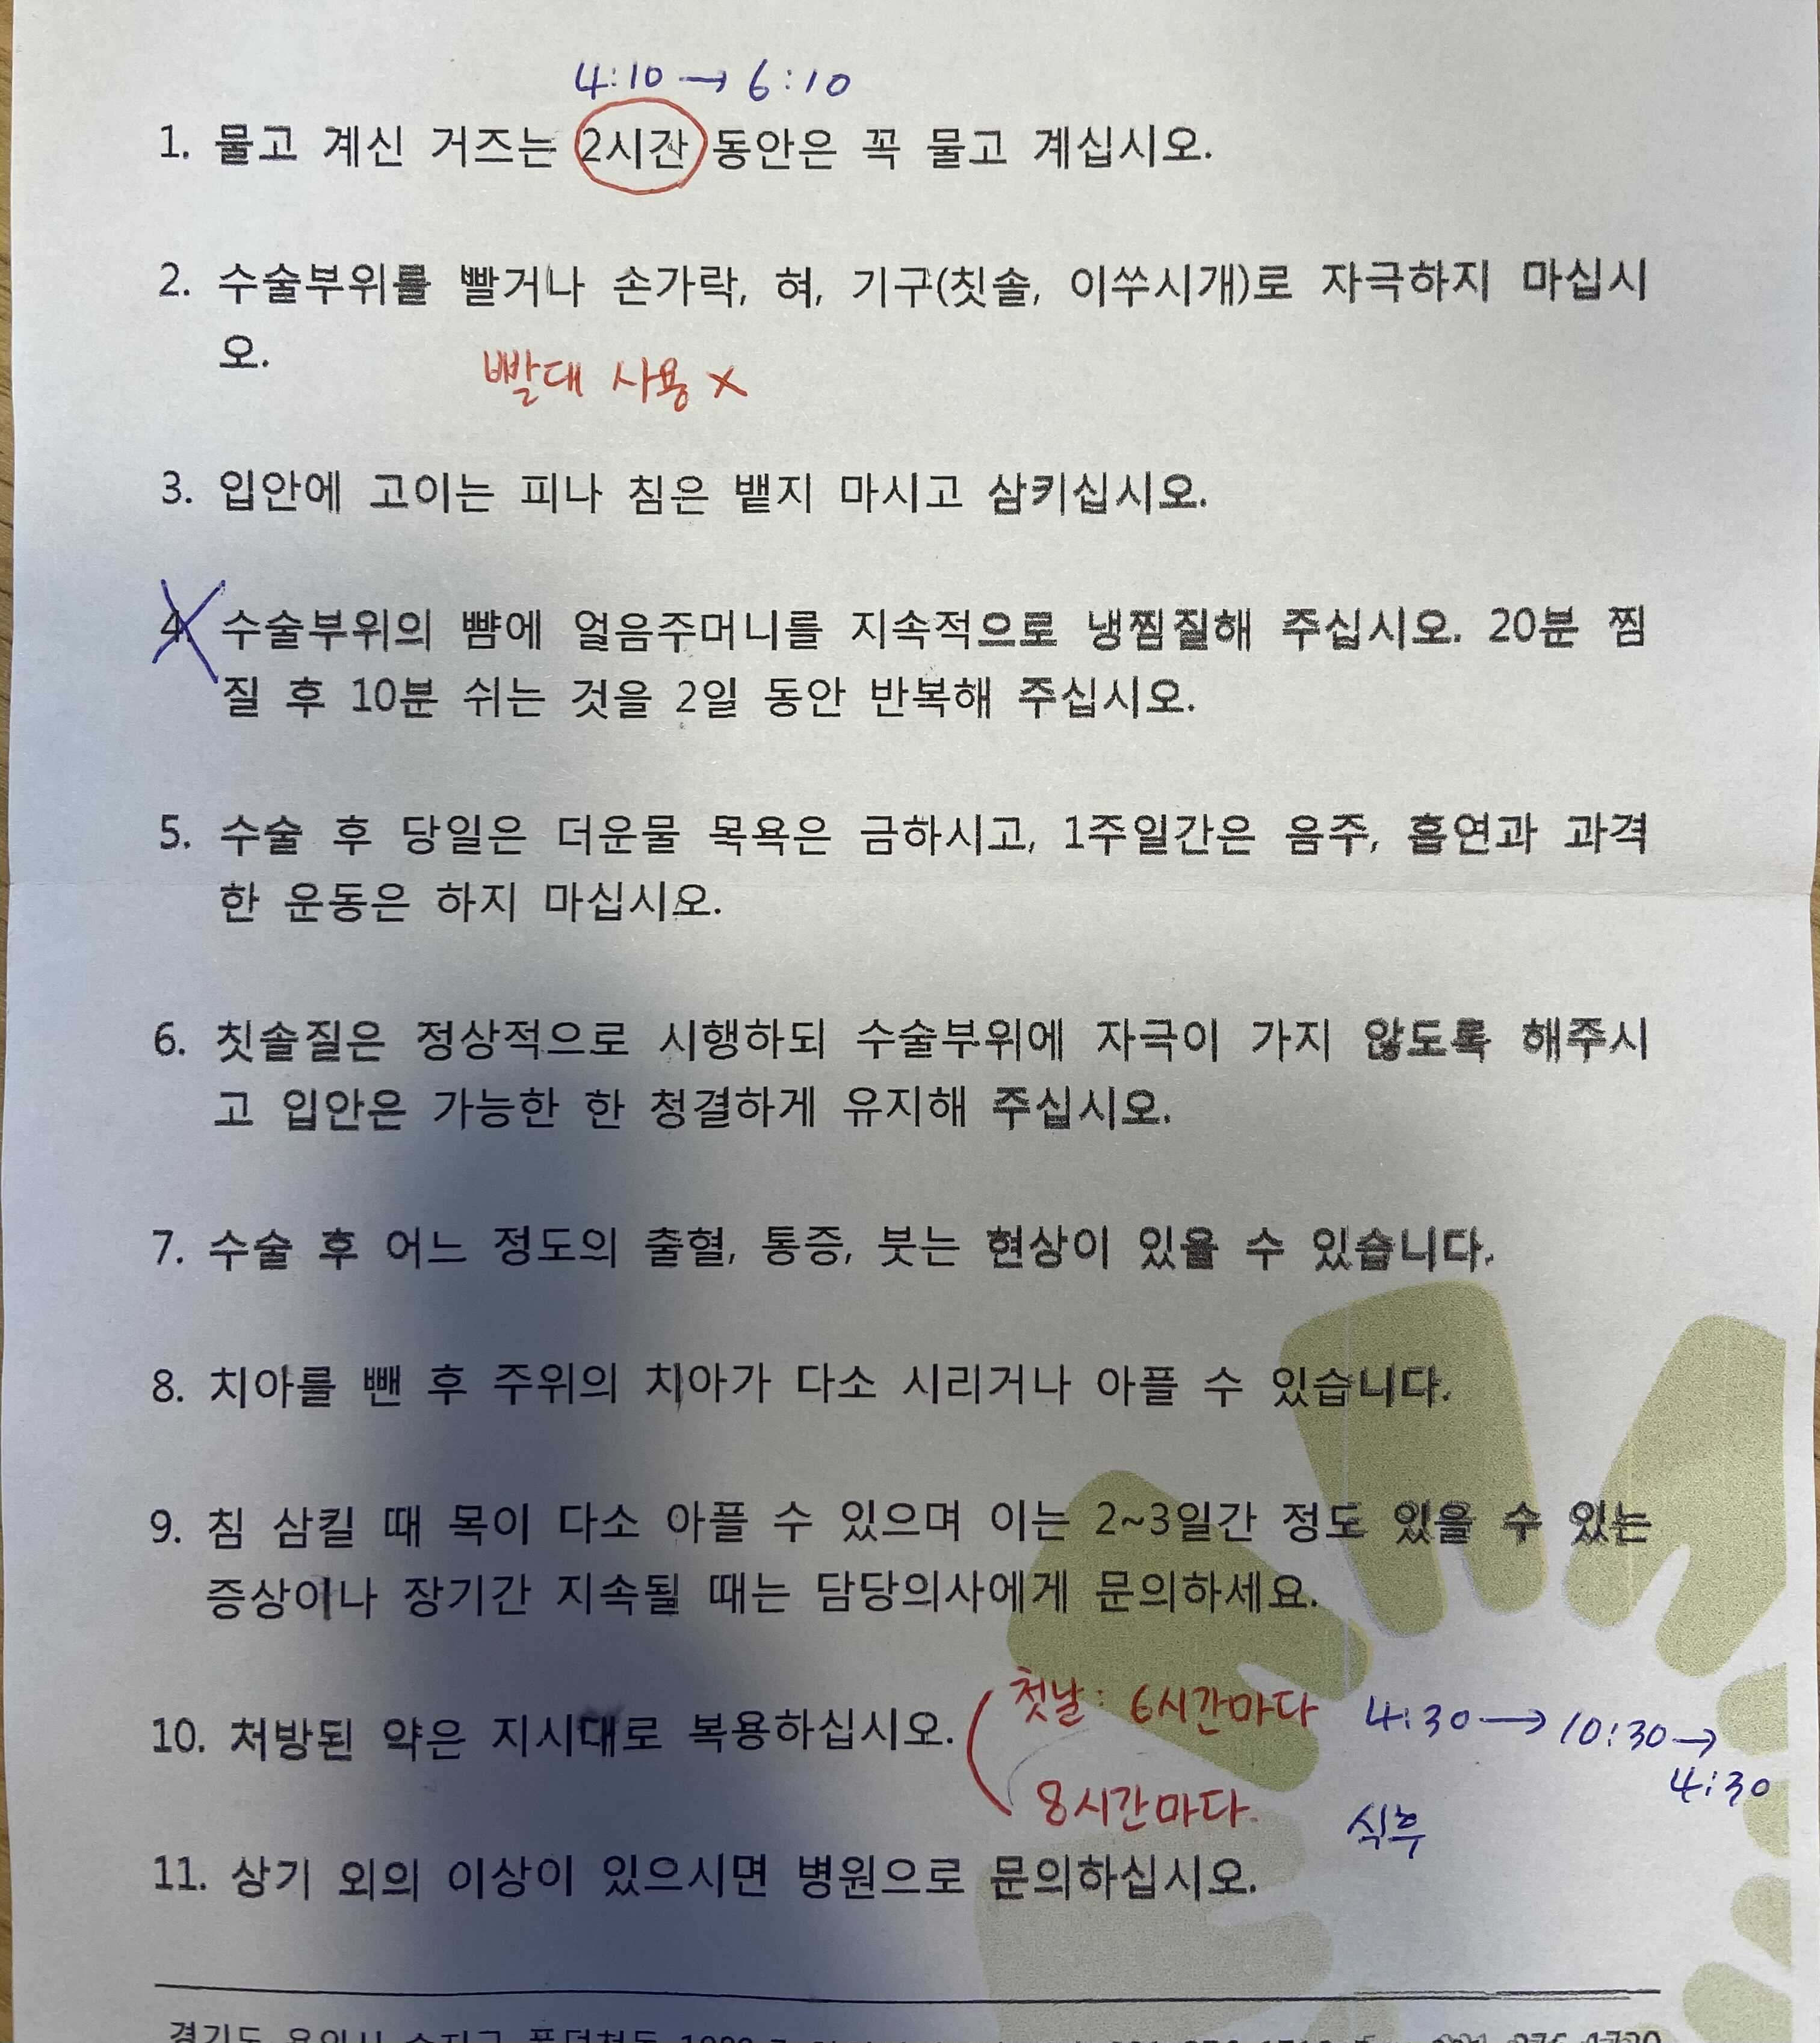 4:10 → 6:10
1. 물고 계신 거즈는 2시간 동안은 꼭 물고 계십시오.
2. 수술부위를 빨거나 손가락, 혀, 기구(칫솔, 이쑤시개)로 자극하지 마십시
오.
빨대 사용 X
3. 입안에 고이는 피나 침은 뱉지 마시고 삼키십시오.
4. 수술부위의 뺨에 얼음주머니를 지속적으로 냉찜질해 주십시오. 20분 찜
질 후 10분 쉬는 것을 2일 동안 반복해 주십시오.
5. 수술 후 당일은 더운물 목욕은 금하시고, 1주일간은 음주, 흡연과 과격
한 운동은 하지 마십시오.
6. 칫솔질은 정상적으로 시행하되 수술부위에 자극이 가지 않도록 해주시
고 입안은 가능한 한 청결하게 유지해 주십시오.
7. 수술 후 어느 정도의 출혈, 통증, 붓는 현상이 있을 수 있습니다.
8. 치아를 뺀 후 주위의 치아가 다소 시리거나 아플 수 있습니다.
9. 침 삼킬 때 목이 다소 아플 수 있으며 이는 2~3일간 정도 있을 수 있는
증상이나 장기간 지속될 때는 담당의사에게 문의하세요.
첫날: 6시간마다 4:30 → 10:30 →
4:30
10. 처방된 약은 지시대로 복용하십시오.
8시간마다. 식후
11. 상기 외의 이상이 있으시면 병원으로 문의하십시오.
경기도 용인시 수지구 풍덕천동